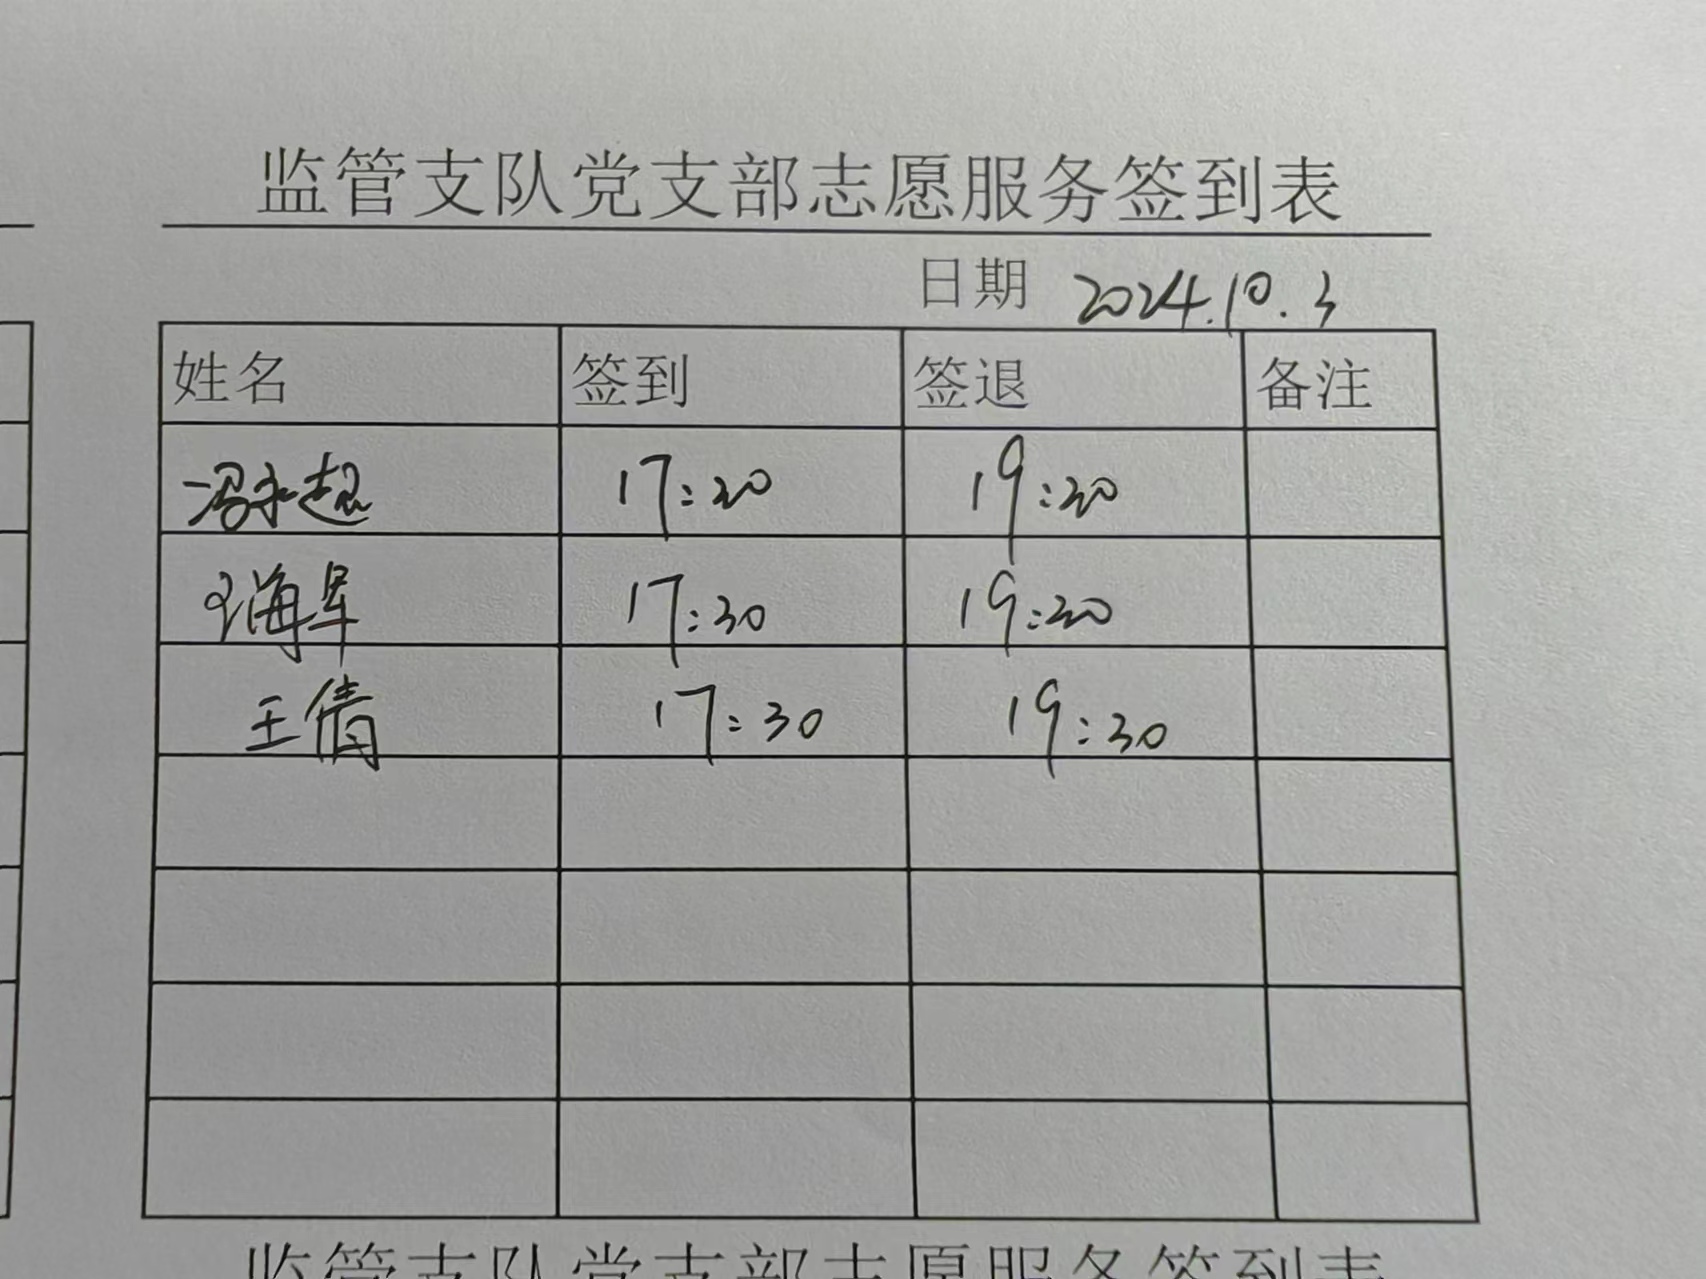 监管支队党支部志愿服务签到表
日期 2024.10.3
姓名 签到 签退 备注
冯永超 17:20 19:20
海军 17:30 19:20
王倩 17:30 19:30
监管支队党支部志愿服务签到表